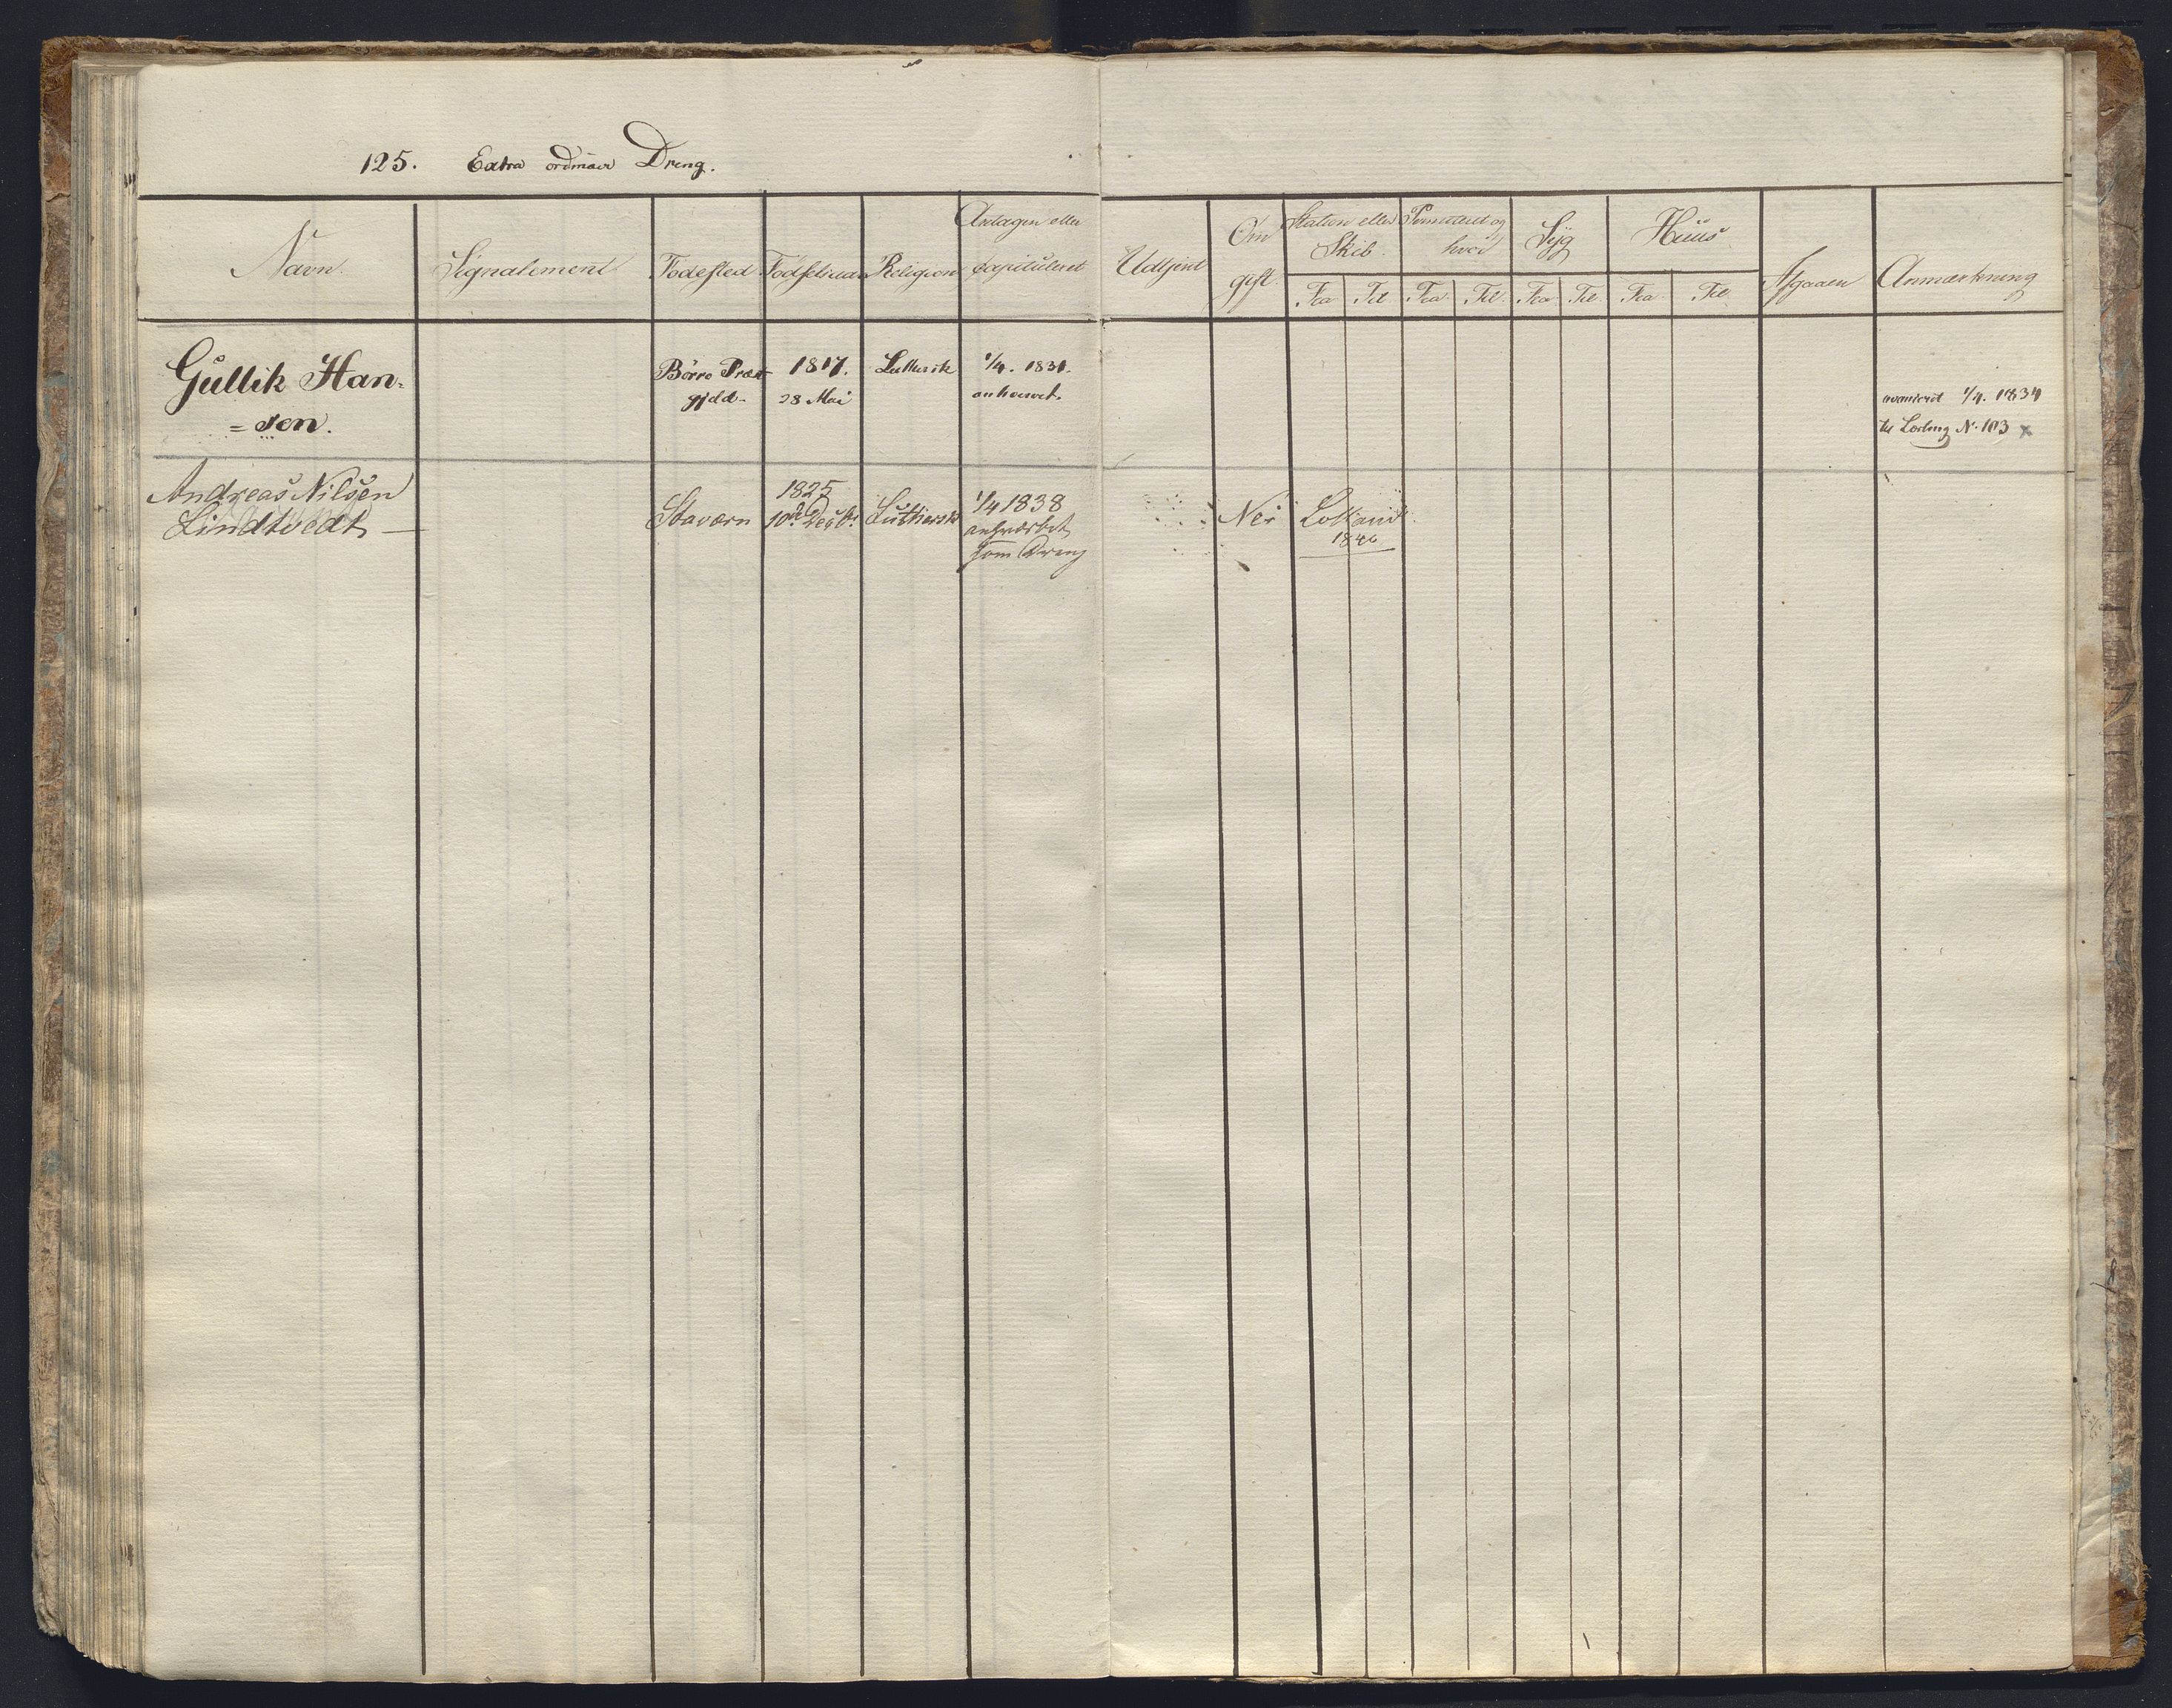 125. Extra ordinær Dreng.
Navn. Signalement Fødested Fødselsaar Religion Antagen eller capituleret Udtjent Om gift Station eller Skib Permitteret og hvor Syg Huus Afgaaen Anmærkning
Fra Til Fra Til Fra Til Fra Til
Gullik Han- Börre Præst 1817. Luthersk 1/4. 1831.
=sen. gjeld- 28 Mai anhvervet. avanceret 1/4. 1834
til Lærling N. 103 x
Andreas Nilsen 1825 1/4 1838
Lindtvedt — Staværn 10de Decbr Luthersk anhværvet Nei Lolland
som Dreng 1840